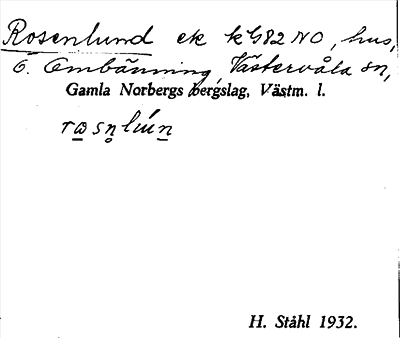 Rosenlund ek kG82 NO, hus,
ö. Ombänning, Västervåla sn,
Gamla Norbergs bergslag, Västm. l.
H. Ståhl 1932.